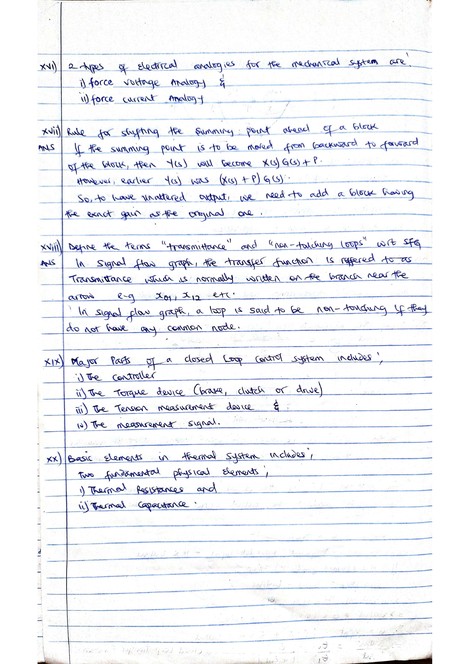 xvi) 2 types of electrical analogies for the mechanical system are;
i) force voltage Analogy &
ii) force current Analogy
xvii) Rule for shifting the summing point ahead of a block
ANS If the summing point is to be moved from backward to forward
of the block, then Y(s) will become X(s)G(s) + P.
However, earlier Y(s) was (X(s) + P)G(s).
So, to have unaltered output, we need to add a block having
the exact gain as the original one.
xviii) Define the terms "transmittance" and "non-touching loops" wrt SFG
ANS In signal flow graph, the transfer function is reffered to as
Transmittance which is normally written on the branch near the
arrow e-g X01, X12 etc.
In signal flow graph, a loop is said to be non-touching if they
do not have any common node.
xix) Major Parts of a closed Loop control system includes;
i) The controller
ii) The Torque device (brake, clutch or drive)
iii) The Tension measurement device &
iv) The measurement signal.
xx) Basic Elements in thermal system includes;
two fundamental physical elements;
i) Thermal Resistances and
ii) Thermal Capacitance.